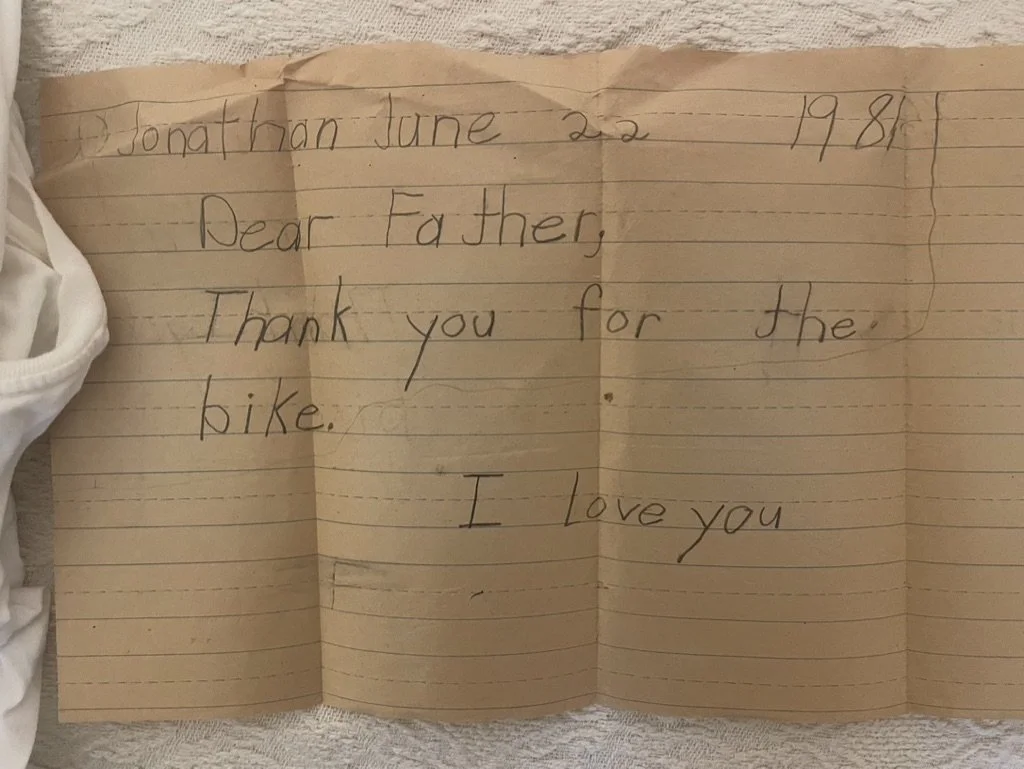 Jonathan June 22 1981
Dear Father,
Thank you for the
bike.
I love you